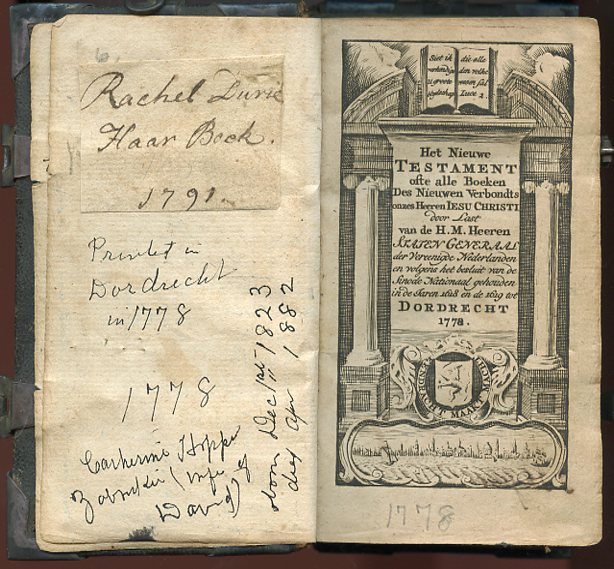 6.
Rachel Durie
Haar Boek.
1791.
Printed in
Dordrecht
in 1778
1778
Catherine Hopper
Zabriskie (wife of
David)
born Dec 1st 1823
died Apr 1882
Siet ik
verkondige
u groote
blydschap
die alle
den volke
wesen sal
Luce 2.
Het Nieuwe
TESTAMENT
ofte alle Boeken
Des Nieuwen Verbondts
onzes Heeren IESU CHRISTI
door Last
van de H.M. Heeren
STATEN GENERAAL
der Vereenigde Nederlanden
en volgens het besluit van de
Sinode Nationaal gehouden
in de Jaren 1618 en de 1619 tot
DORDRECHT
1778.
1778